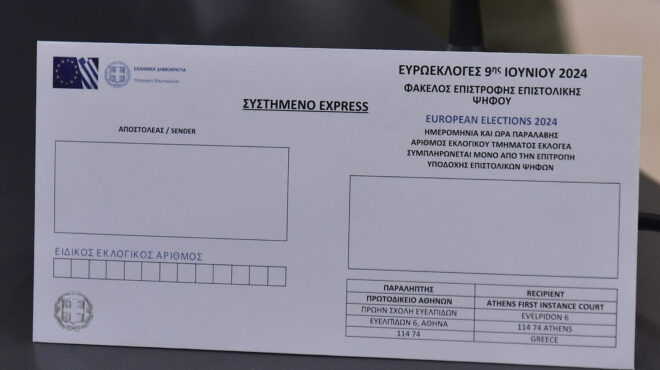 ΕΛΛΗΝΙΚΗ ΔΗΜΟΚΡΑΤΙΑ
Υπουργείο Εσωτερικών
ΣΥΣΤΗΜΕΝΟ EXPRESS
ΑΠΟΣΤΟΛΕΑΣ / SENDER
ΕΙΔΙΚΟΣ ΕΚΛΟΓΙΚΟΣ ΑΡΙΘΜΟΣ
ΕΥΡΩΕΚΛΟΓΕΣ 9ης ΙΟΥΝΙΟΥ 2024
ΦΑΚΕΛΟΣ ΕΠΙΣΤΡΟΦΗΣ ΕΠΙΣΤΟΛΙΚΗΣ
ΨΗΦΟΥ
EUROPEAN ELECTIONS 2024
ΗΜΕΡΟΜΗΝΙΑ ΚΑΙ ΩΡΑ ΠΑΡΑΛΑΒΗΣ
ΑΡΙΘΜΟΣ ΕΚΛΟΓΙΚΟΥ ΤΜΗΜΑΤΟΣ ΕΚΛΟΓΕΑ
ΣΥΜΠΛΗΡΩΝΕΤΑΙ ΜΟΝΟ ΑΠΟ ΤΗΝ ΕΠΙΤΡΟΠΗ
ΥΠΟΔΟΧΗΣ ΕΠΙΣΤΟΛΙΚΩΝ ΨΗΦΩΝ
ΠΑΡΑΛΗΠΤΗΣ RECIPIENT
ΠΡΩΤΟΔΙΚΕΙΟ ΑΘΗΝΩΝ ATHENS FIRST INSTANCE COURT
ΠΡΩΗΝ ΣΧΟΛΗ ΕΥΕΛΠΙΔΩΝ EVELPIDON 6
ΕΥΕΛΠΙΔΩΝ 6, ΑΘΗΝΑ 114 74 ATHENS
114 74 GREECE